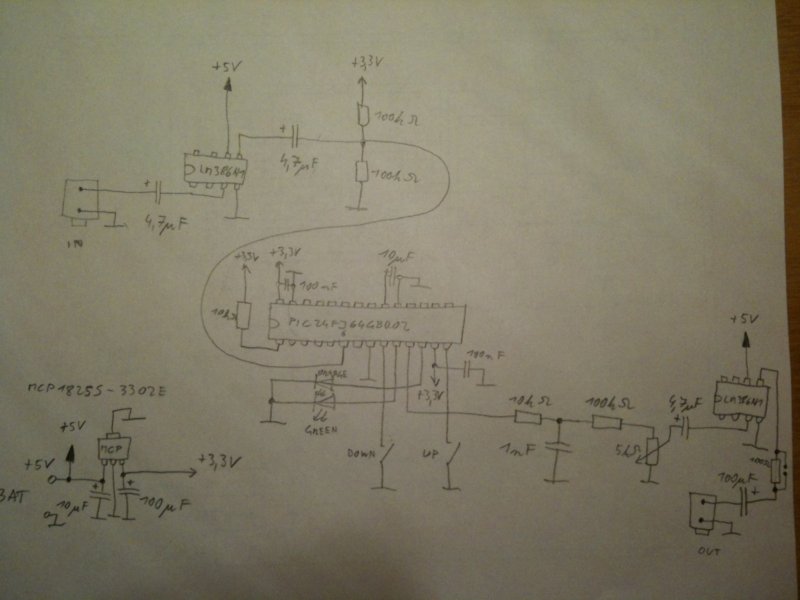 +5V
+3,3V
100kΩ
+
4,7µF
LM386N1
100kΩ
+
4,7µF
IN
+3,3V
+3,3V
10µF
100nF
10kΩ
PIC24FJ64GB002
100nF
ORANGE
+3,3V
GREEN
+5V
MCP1825S-3302E
LM386N1
10kΩ
100kΩ
4,7µF
+
+5V
MCP
DOWN
UP
1nF
5kΩ
+5V
+3,3V
BAT
10µF
+
+
100µF
100µF
+
OUT